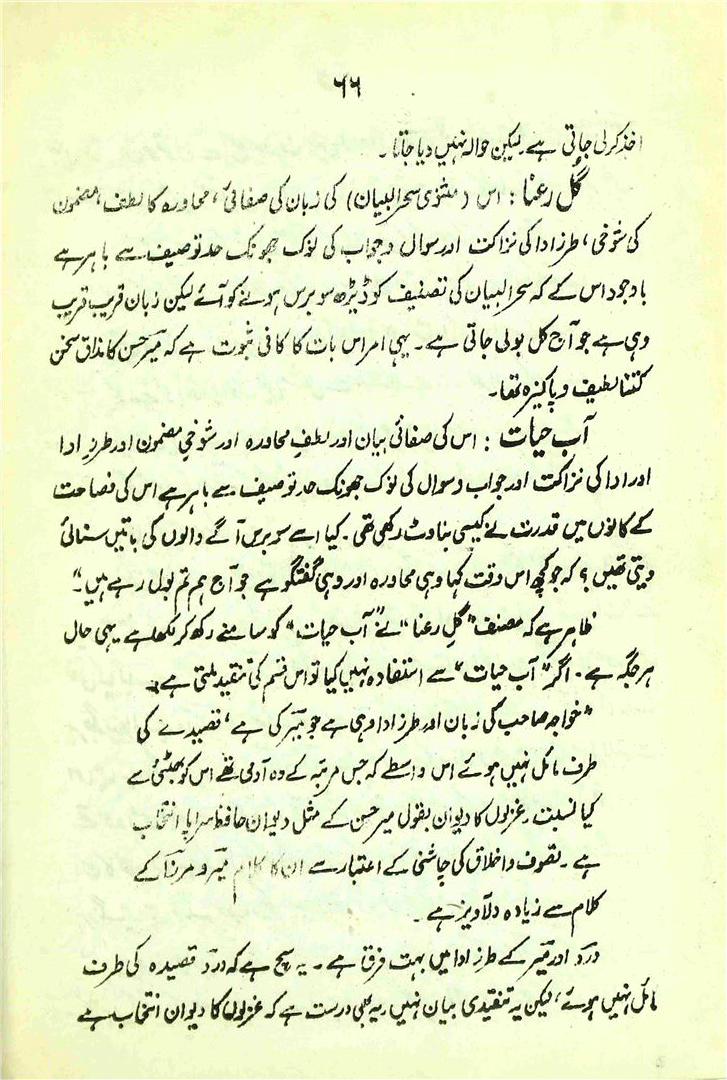 ۶۶
اخذ کر لی جاتی ہے۔ لیکن حوالہ نہیں دیا جاتا۔
گل رعنا : اس (مثنوی سحر البیان) کی زبان کی صفائی، محاورہ کا لطف، مضمون
کی شوخی، طرز ادا کی نزاکت اور سوال و جواب کی نوک جھونک حد توصیف سے باہر ہے
باوجود اس کے کہ سحر البیان کی تصنیف کو ڈیڑھ سو برس ہونے کو آئے لیکن زبان قریب قریب
وہی ہے جو آج کل بولی جاتی ہے۔ یہی امر اس بات کا کافی ثبوت ہے کہ میر حسن کا مذاق سخن
کتنا لطیف و پاکیزہ تھا۔
آب حیات : اس کی صفائی بیان اور لطفِ محاورہ اور شوخیِ مضمون اور طرزِ ادا
اور ادا کی نزاکت اور جواب و سوال کی نوک جھونک حد توصیف سے باہر ہے اس کی فصاحت
کے کانوں میں قدرت نے کیسی بناوٹ رکھی تھی۔ کیا اسے سو برس آگے والوں کی باتیں سنائی
دیتی تھیں؟ کہ جو کچھ اس وقت کہا وہی محاورہ اور وہی گفتگو ہے جو آج ہم تم بول رہے ہیں۔"
ظاہر ہے کہ مصنف "گلِ رعنا" نے "آب حیات" کو سامنے رکھ کر لکھا ہے یہی حال
ہر جگہ ہے۔ اگر "آب حیات" سے استفادہ نہیں کیا تو اس قسم کی تنقید ملتی ہے۔
"خواجہ صاحب کی زبان اور طرز ادا وہی ہے جو میر کی ہے، قصیدے کی
طرف مائل نہیں ہوئے اس واسطے کہ جس مرتبہ کے وہ آدمی تھے اس کو بھٹئی سے
کیا نسبت۔ غزلوں کا دیوان بقول میر حسن کے مثل دیوان حافظ سراپا انتخاب
ہے۔ تصوف و اخلاق کی چاشنی کے اعتبار سے ان کا کلام میر و مرزا کے
کلام سے زیادہ دلآویز ہے۔
درد اور میر کے طرز ادا میں بہت فرق ہے۔ یہ سچ ہے کہ درد قصیدہ کی طرف
مائل نہیں ہوئے، لیکن یہ تنقیدی بیان نہیں۔ یہ بھی درست ہے کہ غزلوں کا دیوان انتخاب ہے